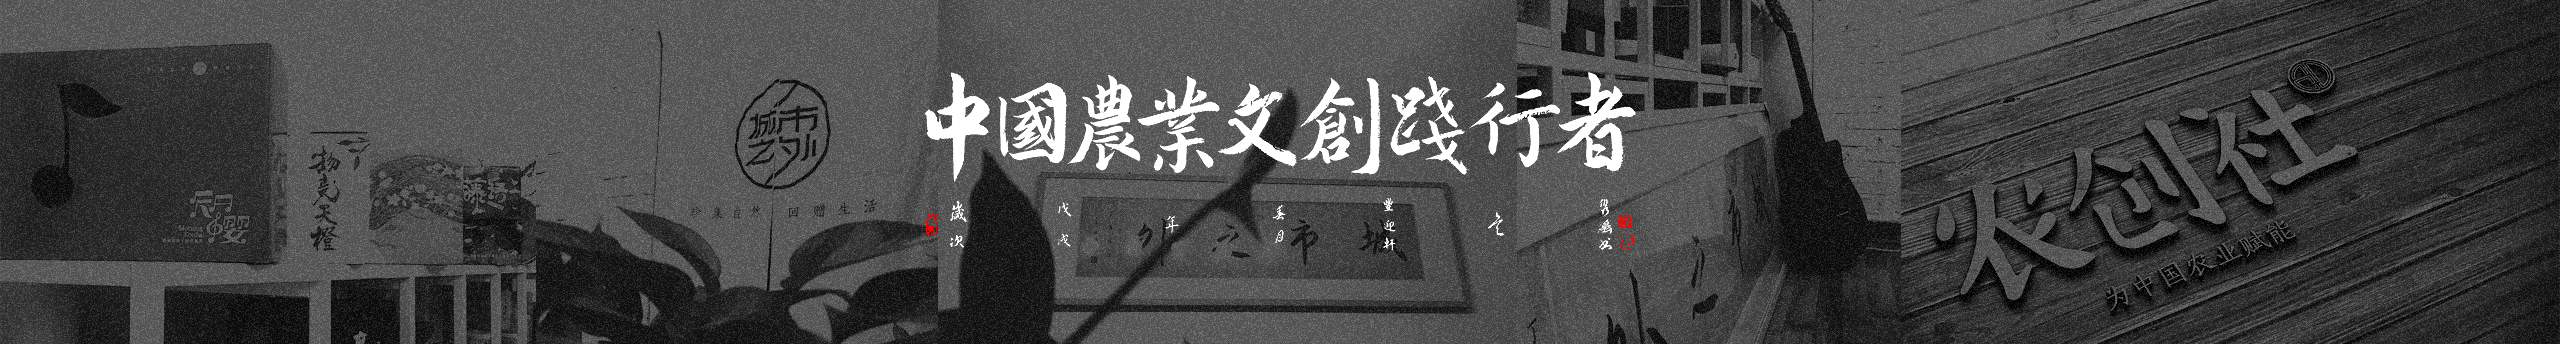 中國農業文創踐行者
歲次
戊戌
年
春月
豐迎軒
城市之外
珍集自然 回赠生活
城市之外
扬亮天橙
农创仕
为中国农业赋能